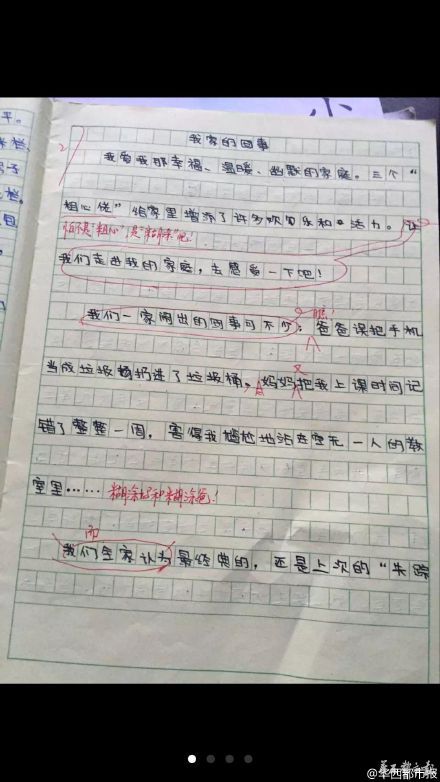 我家的囧事
我有我那幸福、温暖、幽默的家庭。三个“
粗心佬”给家里增添了许多欢笑乐和活力。让
怕不是“粗心”是“糊涂”吧！
我们走进我的家庭，去感受一下吧！
瞧！
我们一家闹出的囧事可不少：爸爸误把手机
又
当成垃圾扔进了垃圾桶，妈妈把我上课时间记
错了整整一周，害得我尴尬地站在空无一人的教
室里……糊涂妈和糊涂爸！
而
我们全家认为最经典的，还是上次的“失踪
平。
栏
子
栏
包
小
@华西都市报